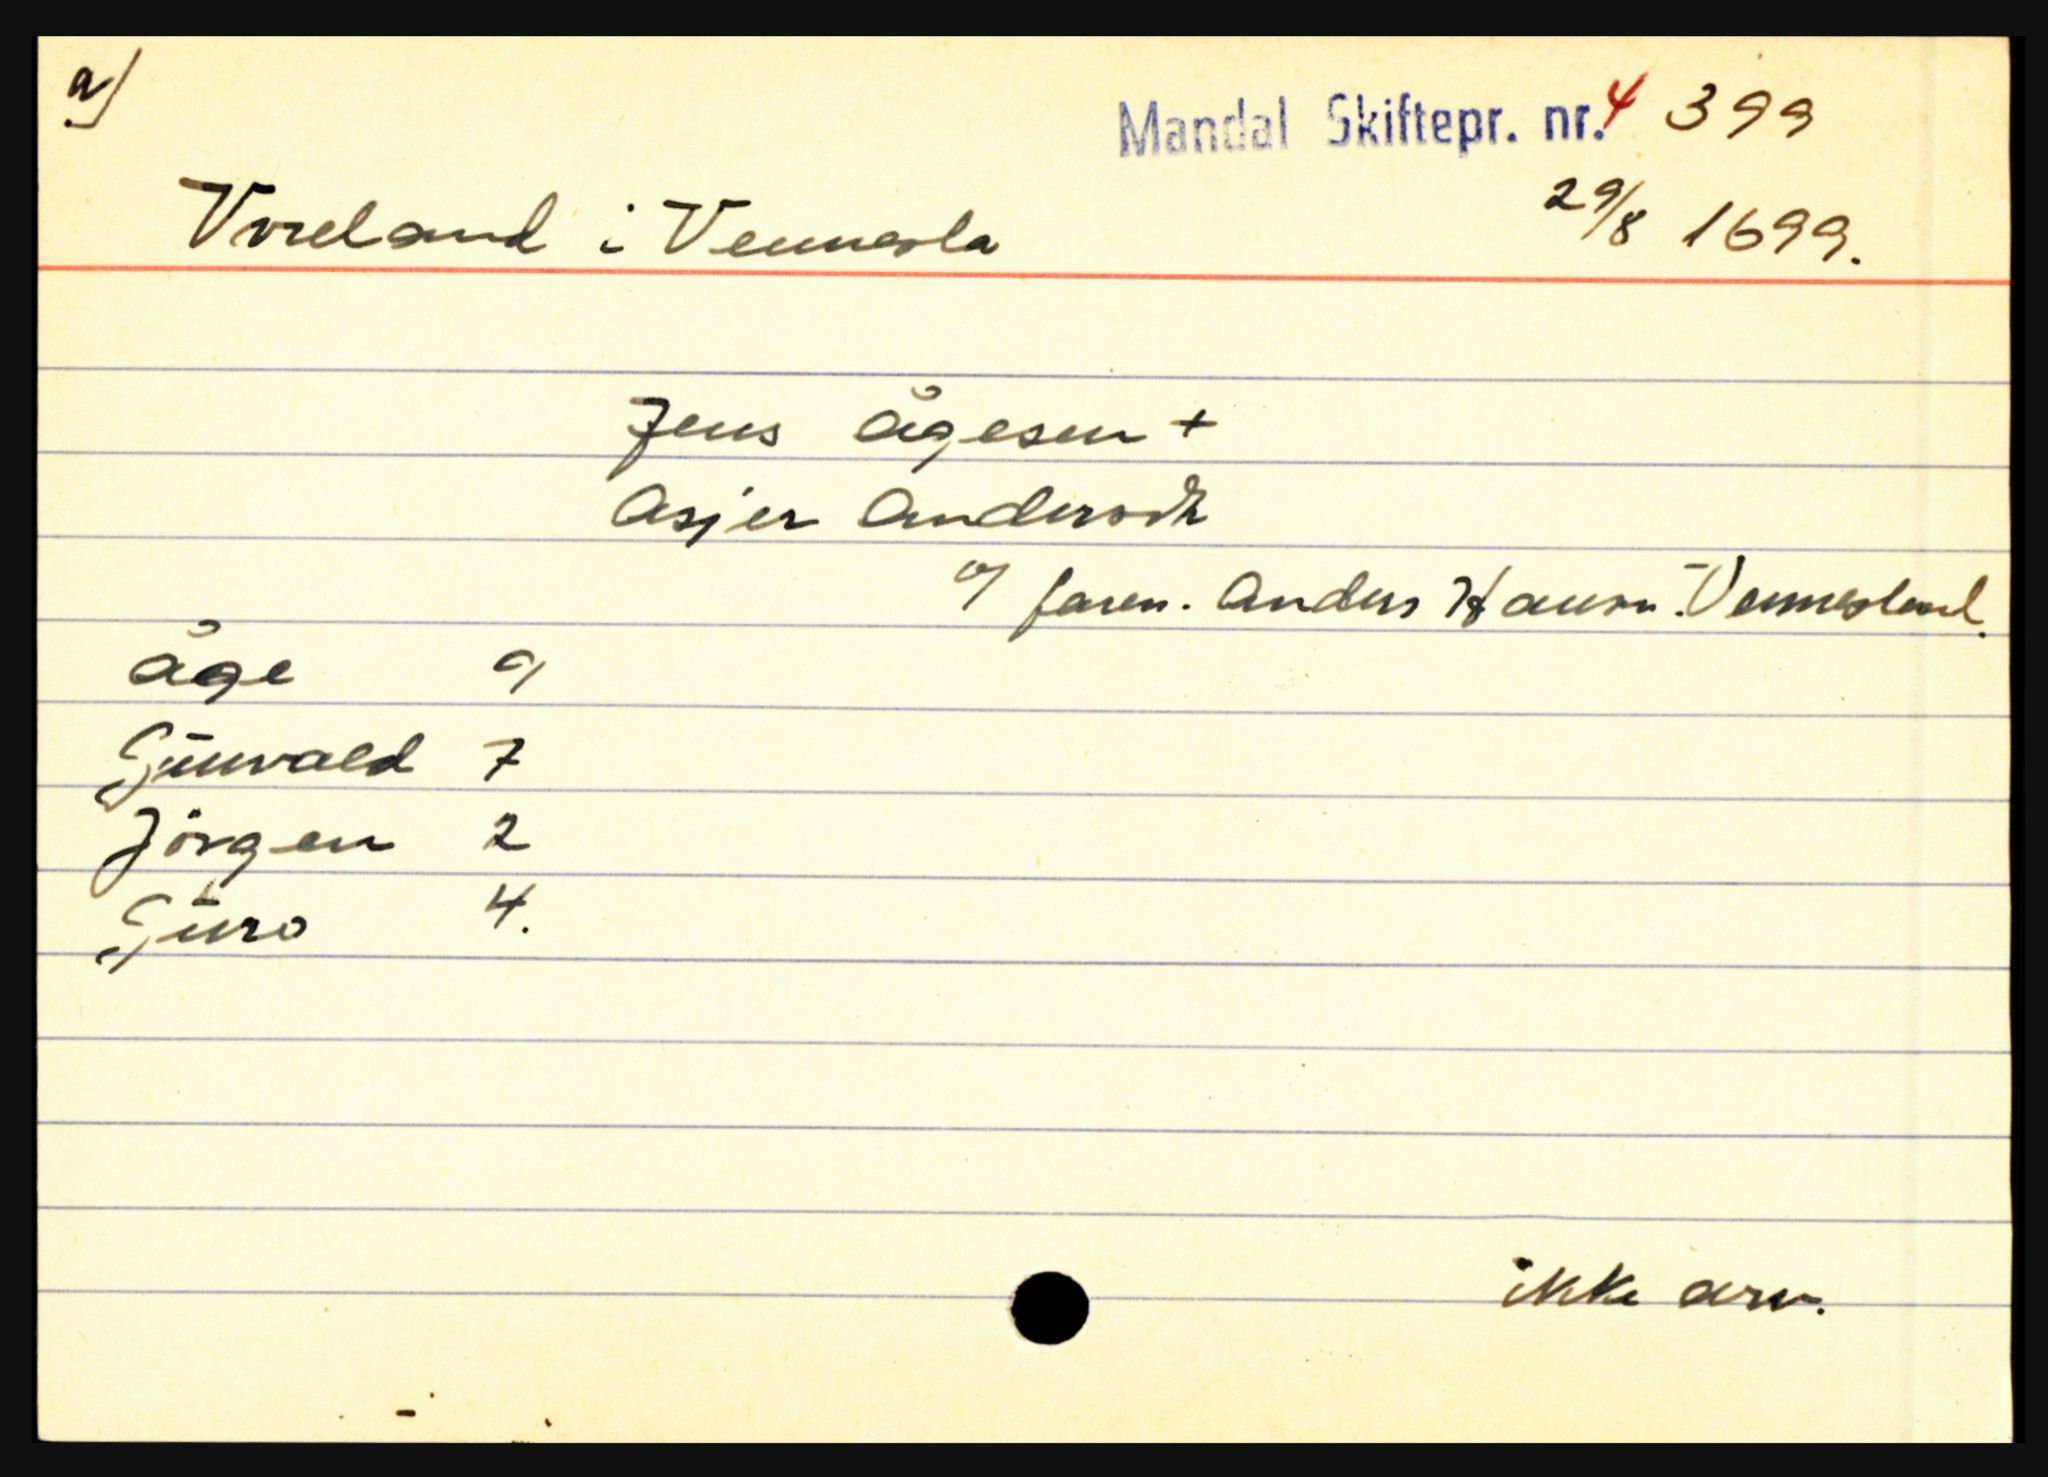 a)
Mandal Skiftepr. nr. 4 399
Vreeland i Vennesla 29/8 1699.
Jens Ågesen +
Asjer Andersdt
v/ faren. Anders Hansn. Vennesland.
Åge 9
Gunvald 7
Jörgen 2
Guro 4.
ikke arv.